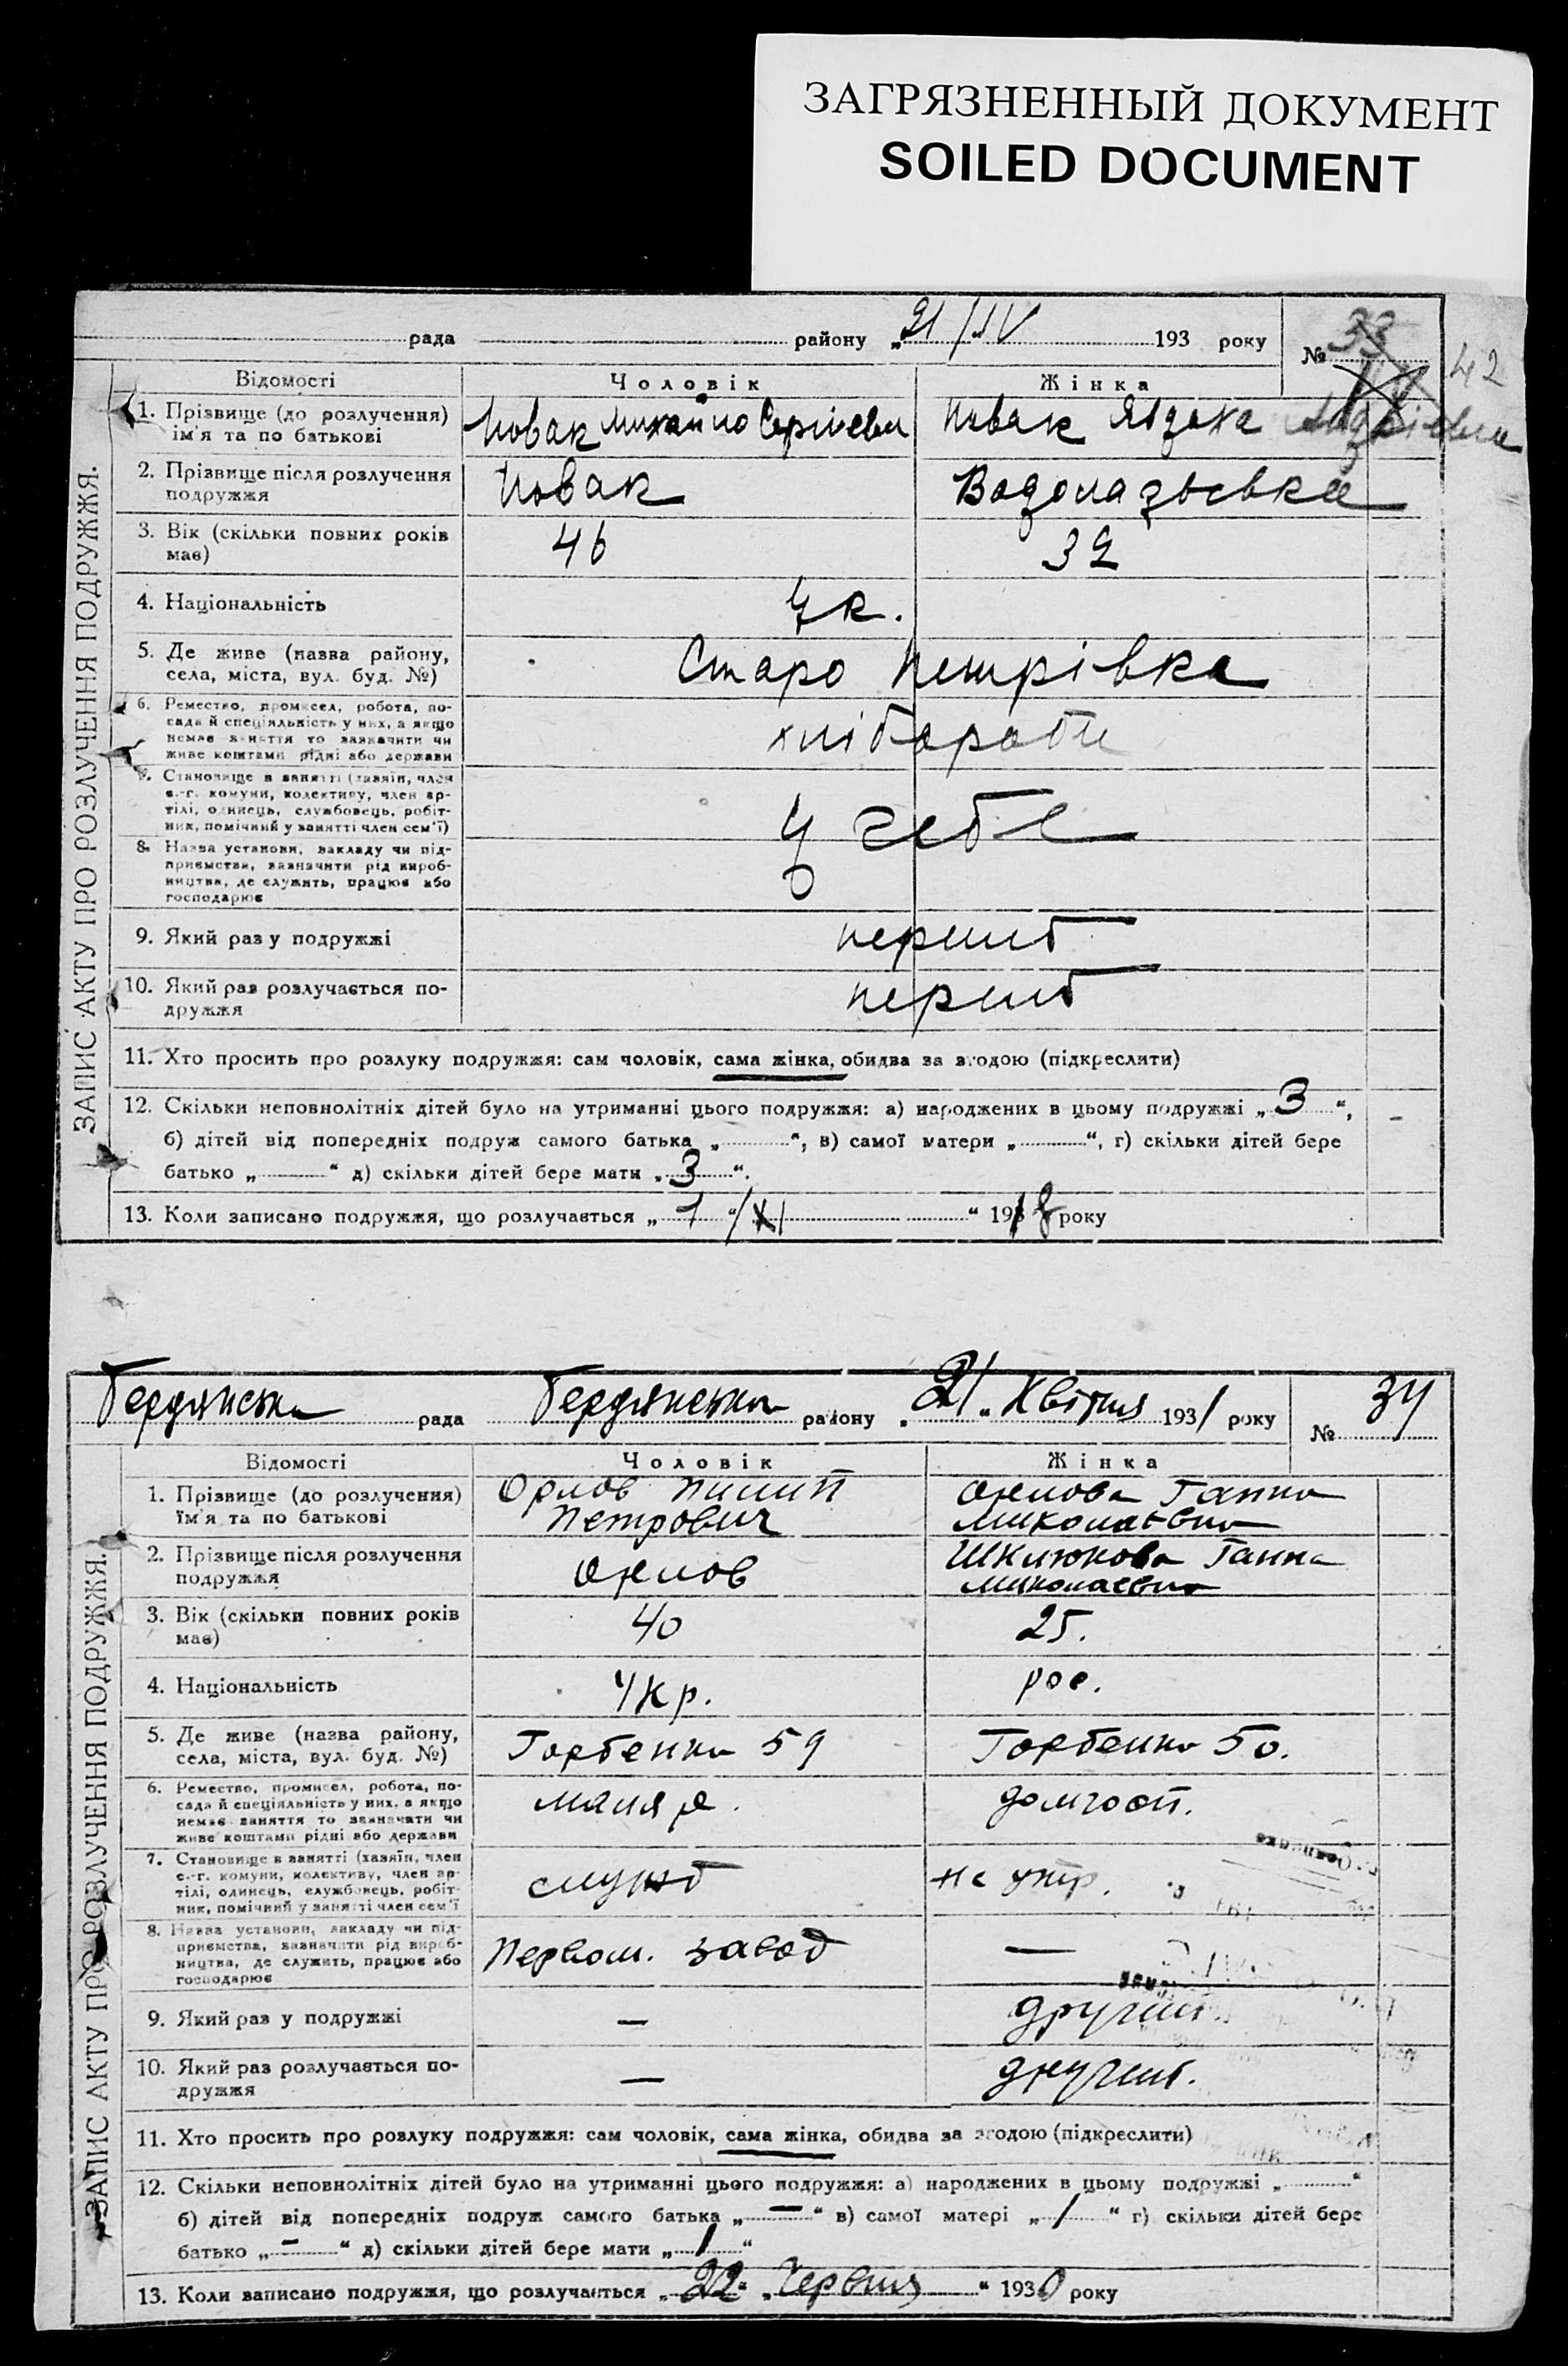 ЗАГРЯЗНЕННЫЙ ДОКУМЕНТ
SOILED DOCUMENT
рада району „21/IV 193 року № 33
42
Відомості Чоловік Жінка
1. Прізвище (до розлучення) ім'я та по батькові Новак Михайло Сергієвич Новак Явдоха
2. Прізвище після розлучення подружжя Новак
3. Вік (скільки повних років має) 46 32
4. Національність Ук.
5. Де живе (назва району, села, міста, вул. буд. №) Старо Петрівка
6. Ремество, промисел, робота, по-
сада й спеціяльність у них, а якщо
немає заняття то зазначити чи
живе коштами рідні або держави
хлібороби
7. Становище в занятті (хазяїн, член
с.-г. комуни, колективу, член ар-
тілі, одинець, службовець, робіт-
ник, помічний у занятті член сем'ї)
У себе
8. Назва установи, закладу чи під-
приємства, зазначити рід вироб-
ництва, де служить, працює або
господарює
9. Який раз у подружжі перший
10. Який раз розлучається по-
дружжя перший
11. Хто просить про розлуку подружжя: сам чоловік, сама жінка, обидва за згодою (підкреслити)
12. Скільки неповнолітніх дітей було на утриманні цього подружжя: а) народжених в цьому подружжі „3“,
б) дітей від попередніх подруж самого батька „ “, в) самої матери „ “, г) скільки дітей бере
батько „ “ д) скільки дітей бере мати „3“.
13. Коли записано подружжя, що розлучається „1“/XI “ 1918 року
ЗАПИС АКТУ ПРО РОЗЛУЧЕННЯ ПОДРУЖЖЯ.
Бердянська рада Бердянська району „21“ Квітня 1931 року № 34
Відомості Чоловік Жінка
1. Прізвище (до розлучення) ім'я та по батькові Орлов Пилип Петрович Орлова Ганна Миколаєвна
2. Прізвище після розлучення подружжя Орлов Шклюкова Ганна Миколаевна
3. Вік (скільки повних років має) 40 25.
4. Національність Укр. рос.
5. Де живе (назва району, села, міста, вул. буд. №) Горбенка 59 Горбенка 50.
6. Ремество, промисел, робота, по-
сада й спеціяльність у них, а якщо
немає заняття то зазначити чи
живе коштами рідні або держави
маляр. домгосп.
7. Становище в занятті (хазяїн, член
с.-г. комуни, колективу, член ар-
тілі, одинець, службовець, робіт-
ник, помічний у занятті член сем'ї
служб на утр.
8. Назва установи, закладу чи під-
приємства, зазначити рід вироб-
ництва, де служить, працює або
господарює
Первом. завод —
9. Який раз у подружжі — другий.
10. Який раз розлучається по-
дружжя — другий.
11. Хто просить про розлуку подружжя: сам чоловік, сама жінка, обидва за згодою (підкреслити)
12. Скільки неповнолітніх дітей було на утриманні цього подружжя: а) народжених в цьому подружжі „ “
б) дітей від попередніх подруж самого батька „—“ в) самої матері „1“ г) скільки дітей бере
батько „-“ д) скільки дітей бере мати „1“
13. Коли записано подружжя, що розлучається „22“ „Червня“ 1930 року
ЗАПИС АКТУ ПРО РОЗЛУЧЕННЯ ПОДРУЖЖЯ.